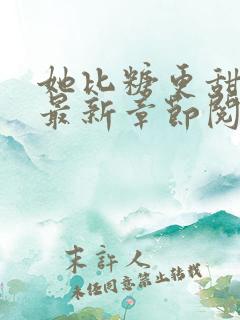 她比糖更甜
最新章节阅
末许人
未经同意禁止转载